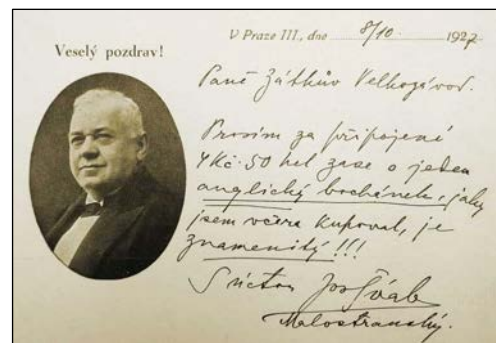 Veselý pozdrav!
V Praze III, dne 8/10. 1927
Paně Zátkův Velkozávod.
Prosím za připojené
4 Kč. 50 hal zase o jeden
anglický bochánek, jaký
jsem včera kupoval, je
znamenitý!!!
S úctou Jos Šváb
Malostranský.